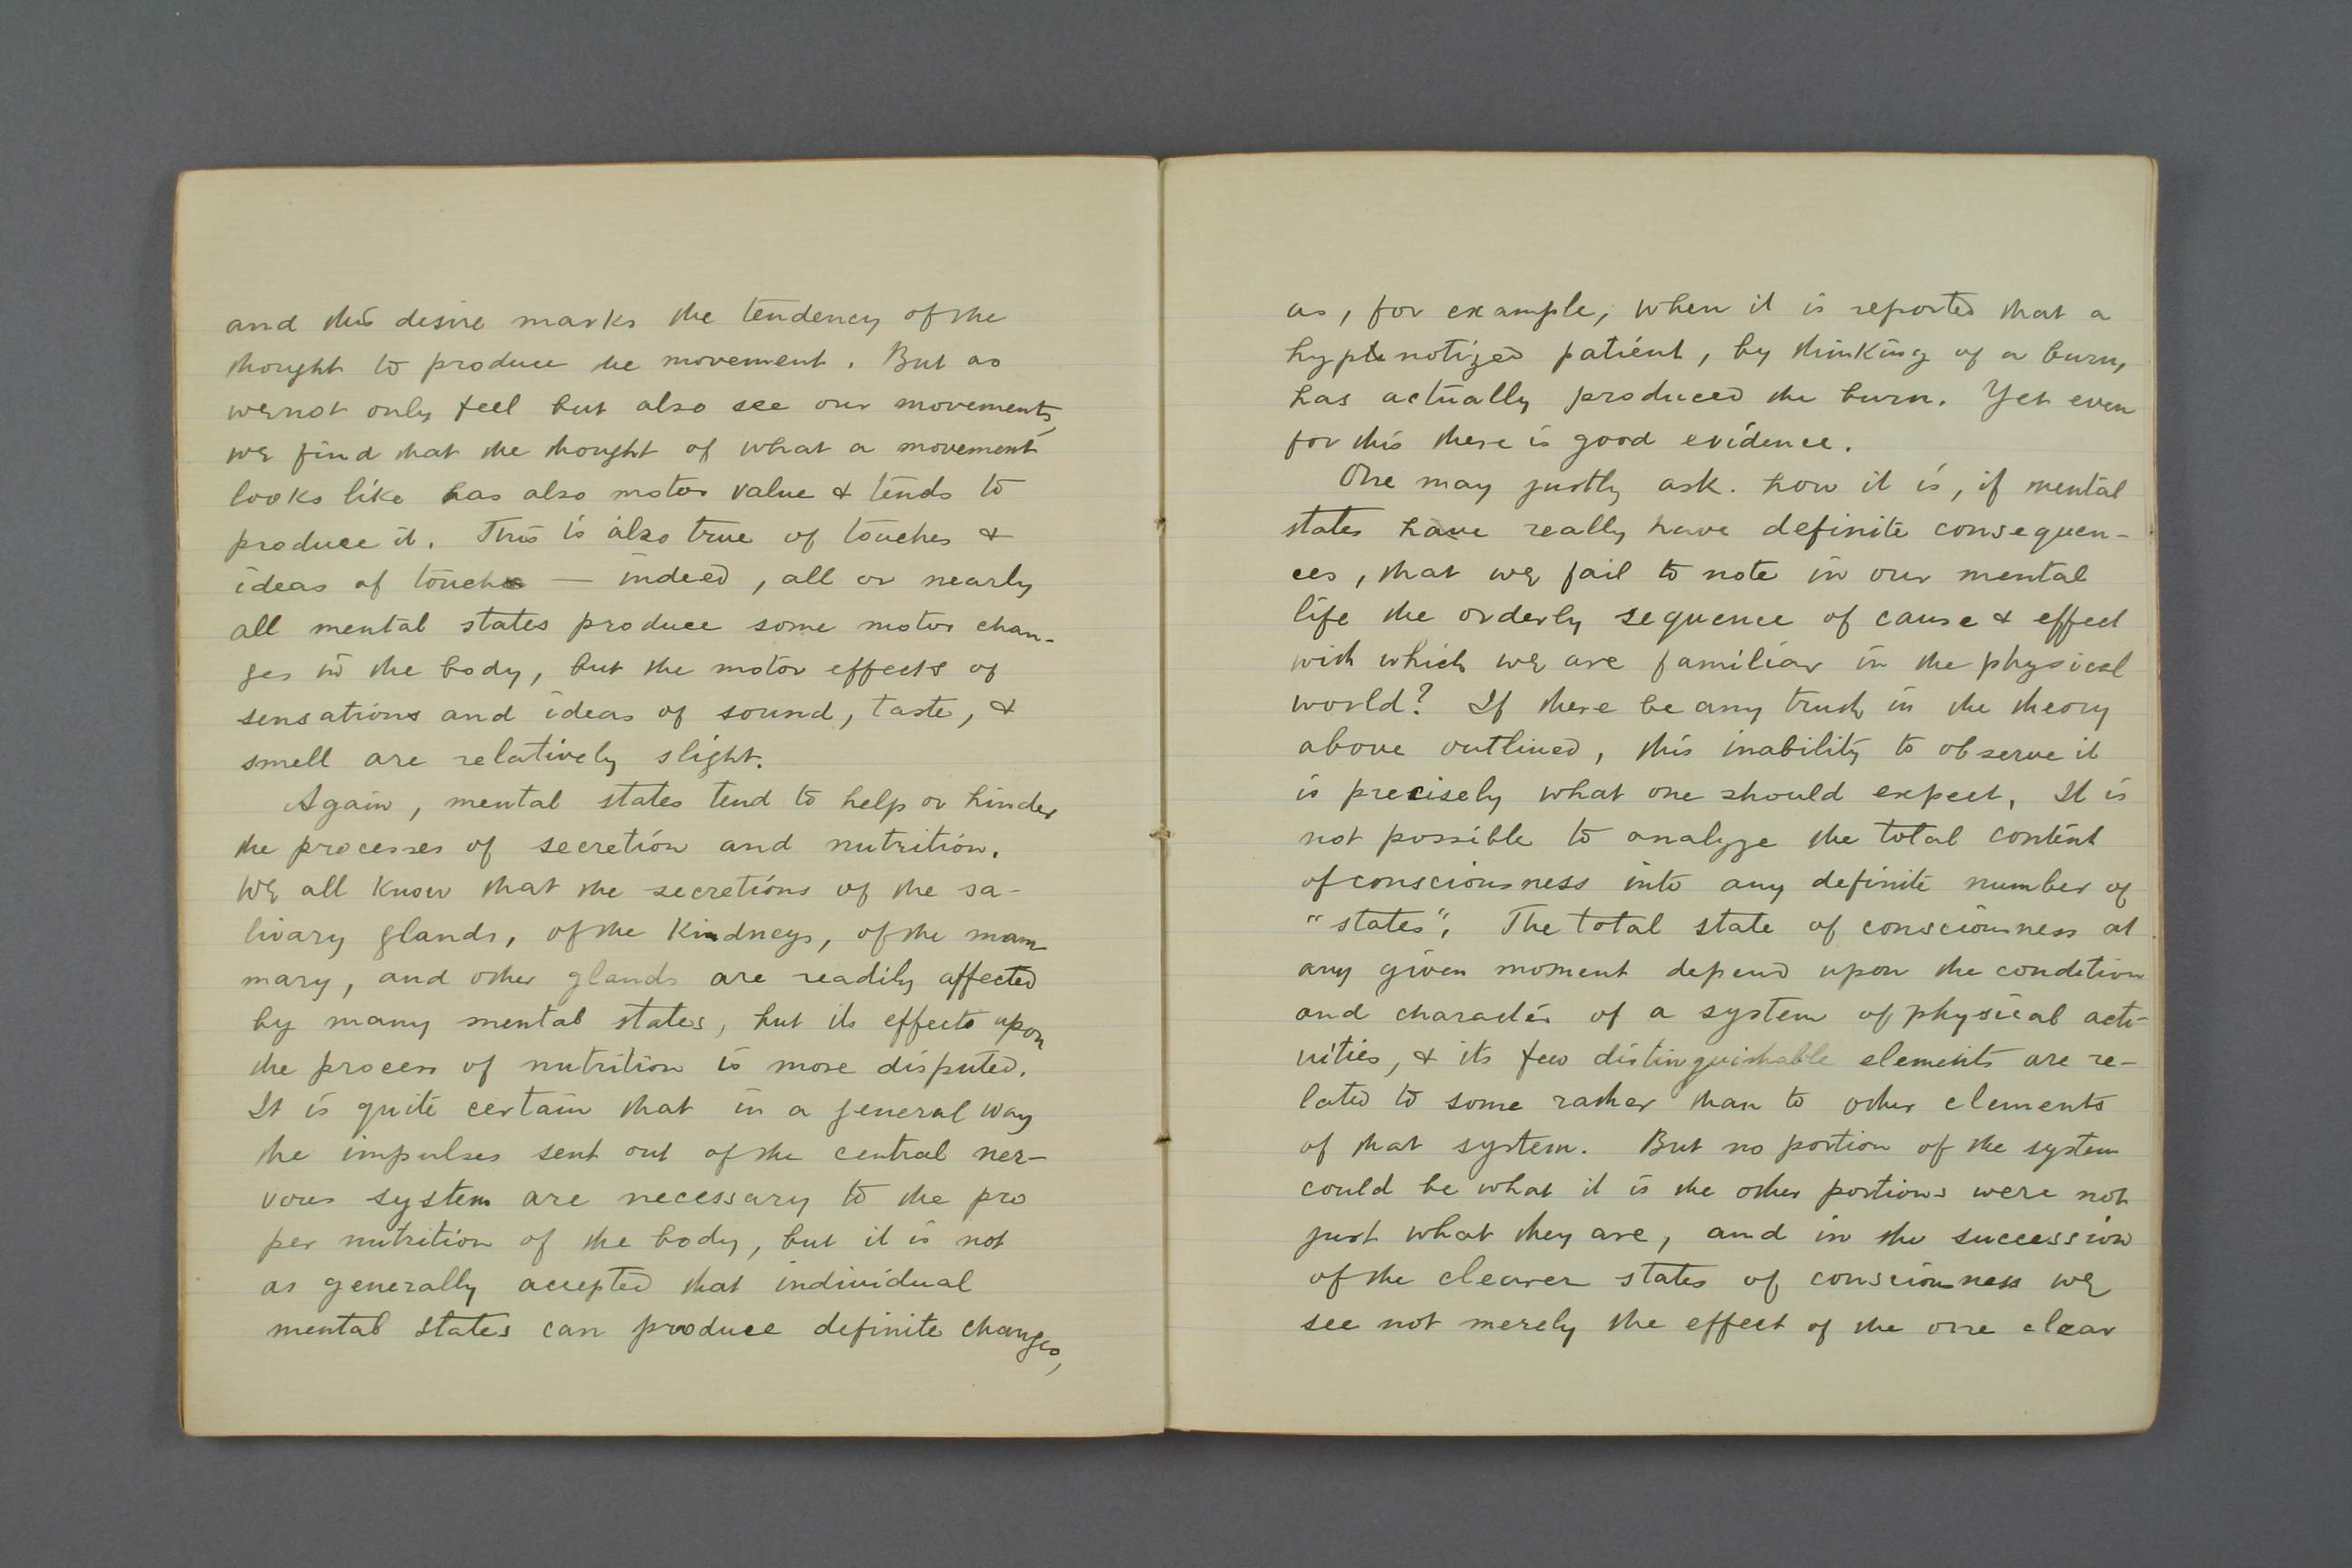 and this desire marks the tendency of the
thought to produce the movement. But as
we not only feel but also see our movements,
we find that the thought of what a movement
looks like has also motor value & tends to
produce it. This is also true of touches &
ideas of touch — indeed, all or nearly
all mental states produce some motor chan-
ges in the body, but the motor effects of
sensations and ideas of sound, taste, &
smell are relatively slight.
Again, mental states tend to help or hinder
the processes of secretion and nutrition.
We all know that the secretions of the sa-
livary glands, of the kindneys, of the mam
mary, and other glands are readily affected
by many mental states, but its effects upon
the process of nutrition is more disputed.
It is quite certain that in a general way
the impulses sent out of the central ner-
vous system are necessary to the pro
per nutrition of the body, but it is not
as generally accepted that individual
mental states can produce definite changes,
as, for example, when it is reported that a
hypnotized patient, by thinking of a burn,
has actually produced the burn. Yet even
for this there is good evidence.
One may justly ask. how it is, if mental
states have really have definite consequen-
ces, that we fail to note in our mental
life the orderly sequence of cause & effect
with which we are familiar in the physical
world? If there be any truth in the theory
above outlined, this inability to observe it
is precisely what one should expect. It is
not possible to analyze the total content
of consciousness into any definite number of
"states". The total state of consciousness at
any given moment depend upon the condition
and character of a system of physical acti-
vities, & its few distinguishable elements are re-
lated to some rather than to other elements
of that system. But no portion of the system
could be what it is the other portions were not
just what they are, and in the succession
of the clearer states of consciousness we
see not merely the effect of the one clear